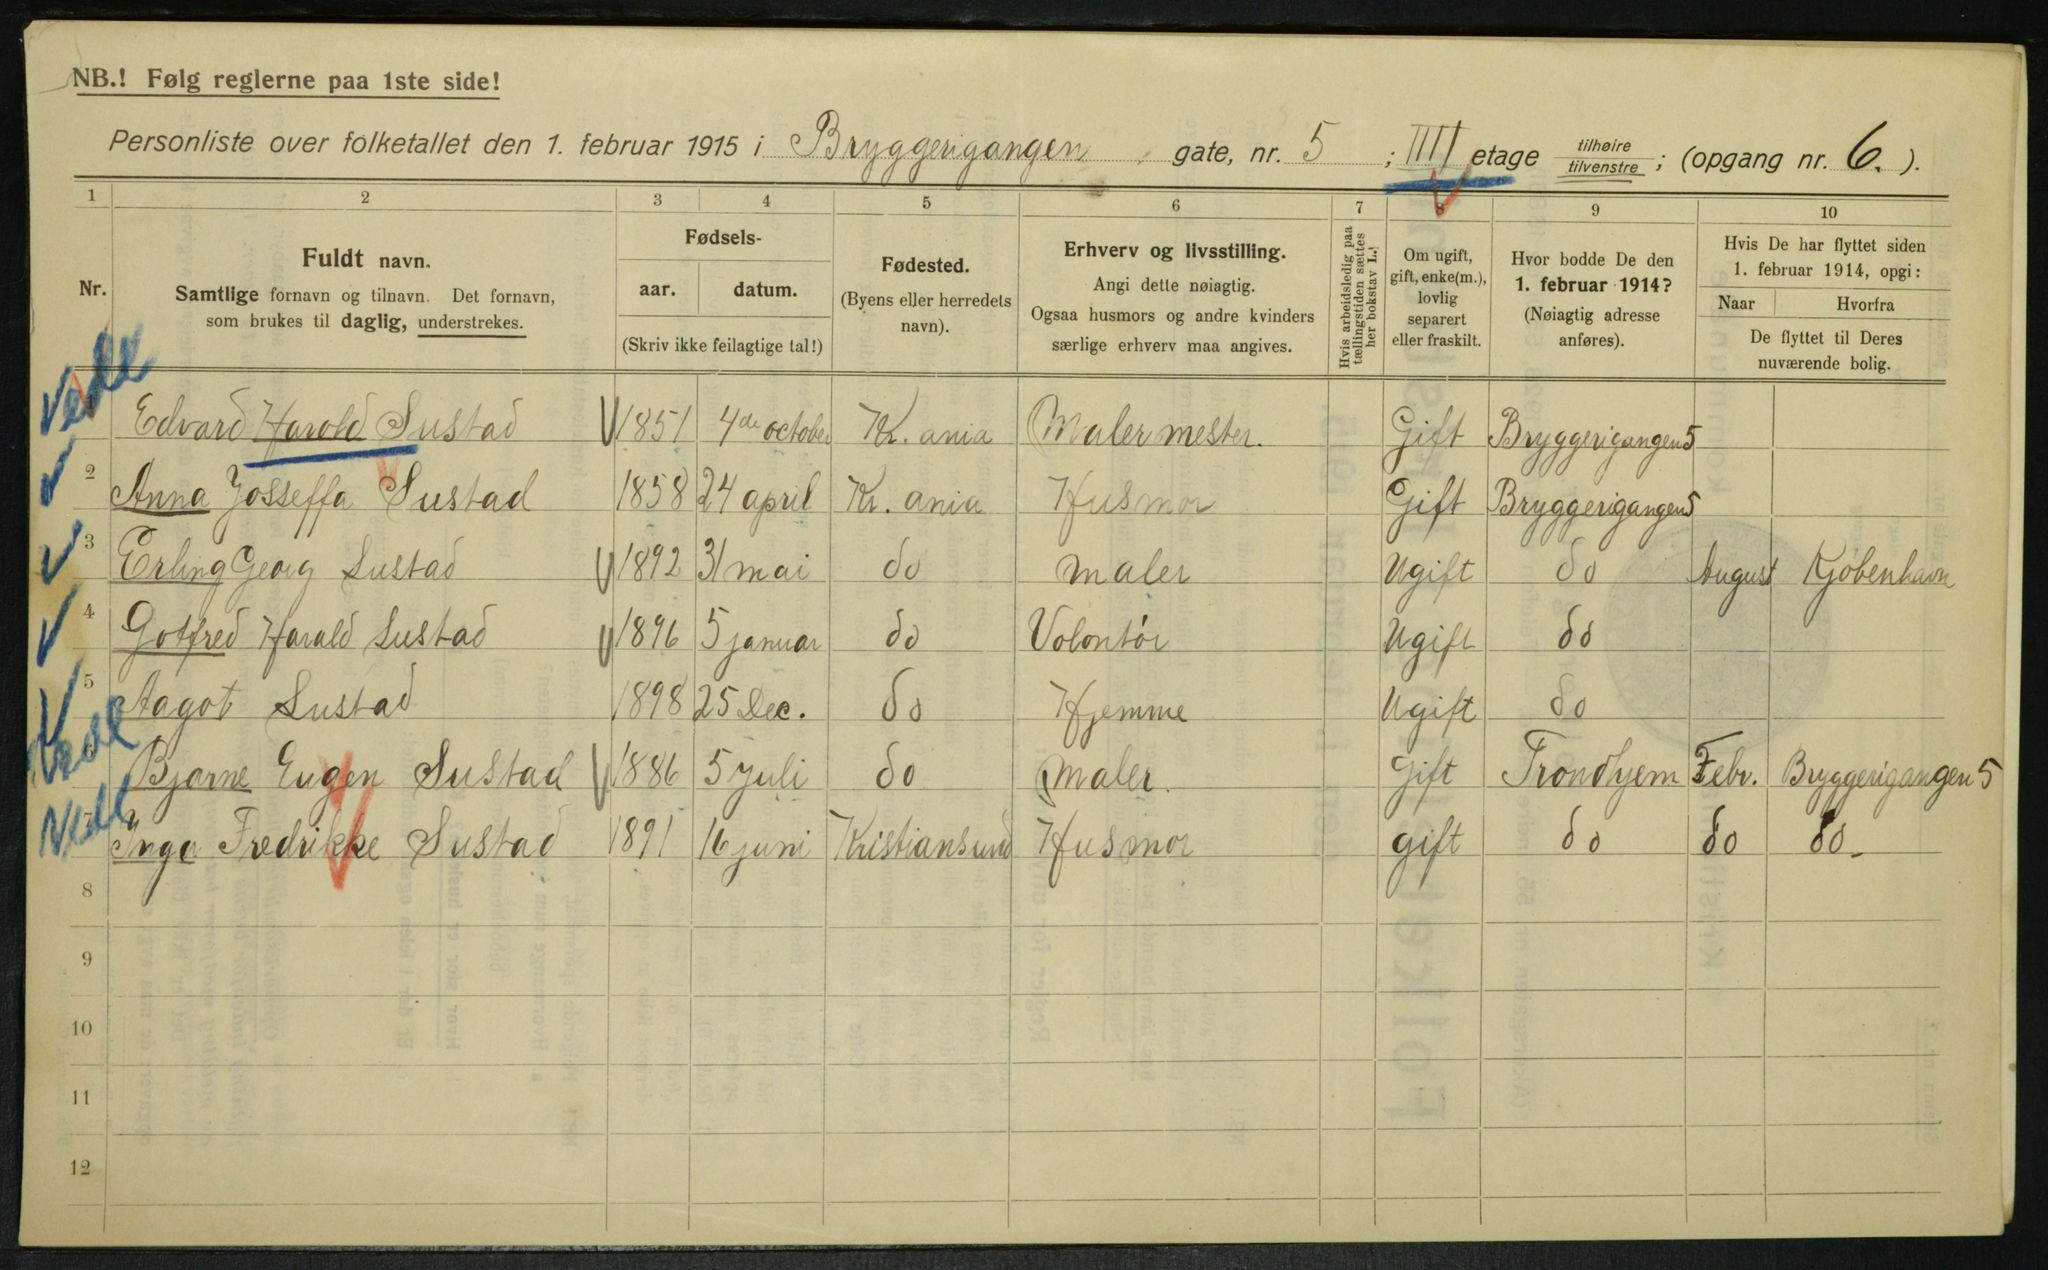 NB.! Følg reglerne paa 1ste side!
Personliste over folketallet den 1. februar 1915 i Bryggerigangen gate, nr. 5 ; IIII etage tilhøire tilvenstre ; (opgang nr. 6. ).
1 2 3 4 5 6 7 8 9 10
Nr.
Fuldt navn.
Samtlige fornavn og tilnavn. Det fornavn,
som brukes til daglig, understrekes.
Fødsels-
aar. datum.
(Skriv ikke feilagtige tal!)
Fødested.
(Byens eller herredets
navn).
Erhverv og livsstilling.
Angi dette nøiagtig.
Ogsaa husmors og andre kvinders
særlige erhverv maa angives.
Hvis arbeidsledig paa
tællingstiden sættes
her bokstav L.!
Om ugift,
gift, enke(m.),
lovlig
separert
eller fraskilt.
Hvor bodde De den
1. februar 1914?
(Nøiagtig adresse
anføres).
Hvis De har flyttet siden
1. februar 1914, opgi:
Naar Hvorfra
De flyttet til Deres
nuværende bolig.
Edvard Harold Sustad 1851 4de october Kr. ania Maler mester. Gift Bryggerigangen 5
2 Anna Josseffa Sustad 1858 24 april Kr. ania Husmor Gift Bryggerigangen 5
3 Erling Georg Sustad 1892 31 mai do Maler Ugift do August Kjøbenhavn
4 Gotfred Harald Sustad 1896 5 januar do Volontør Ugift do
5 Aagot Sustad 1898 25 Dec. do Hjemme Ugift do
6 Bjarne Eugen Sustad 1886 5 juli do Maler. Gift Trondhjem Febr. Bryggerigangen 5
7 Inga Fredrikke Sustad 1891 16 juni Kristiansund Husmor gift do do do
8
9
10
11
12